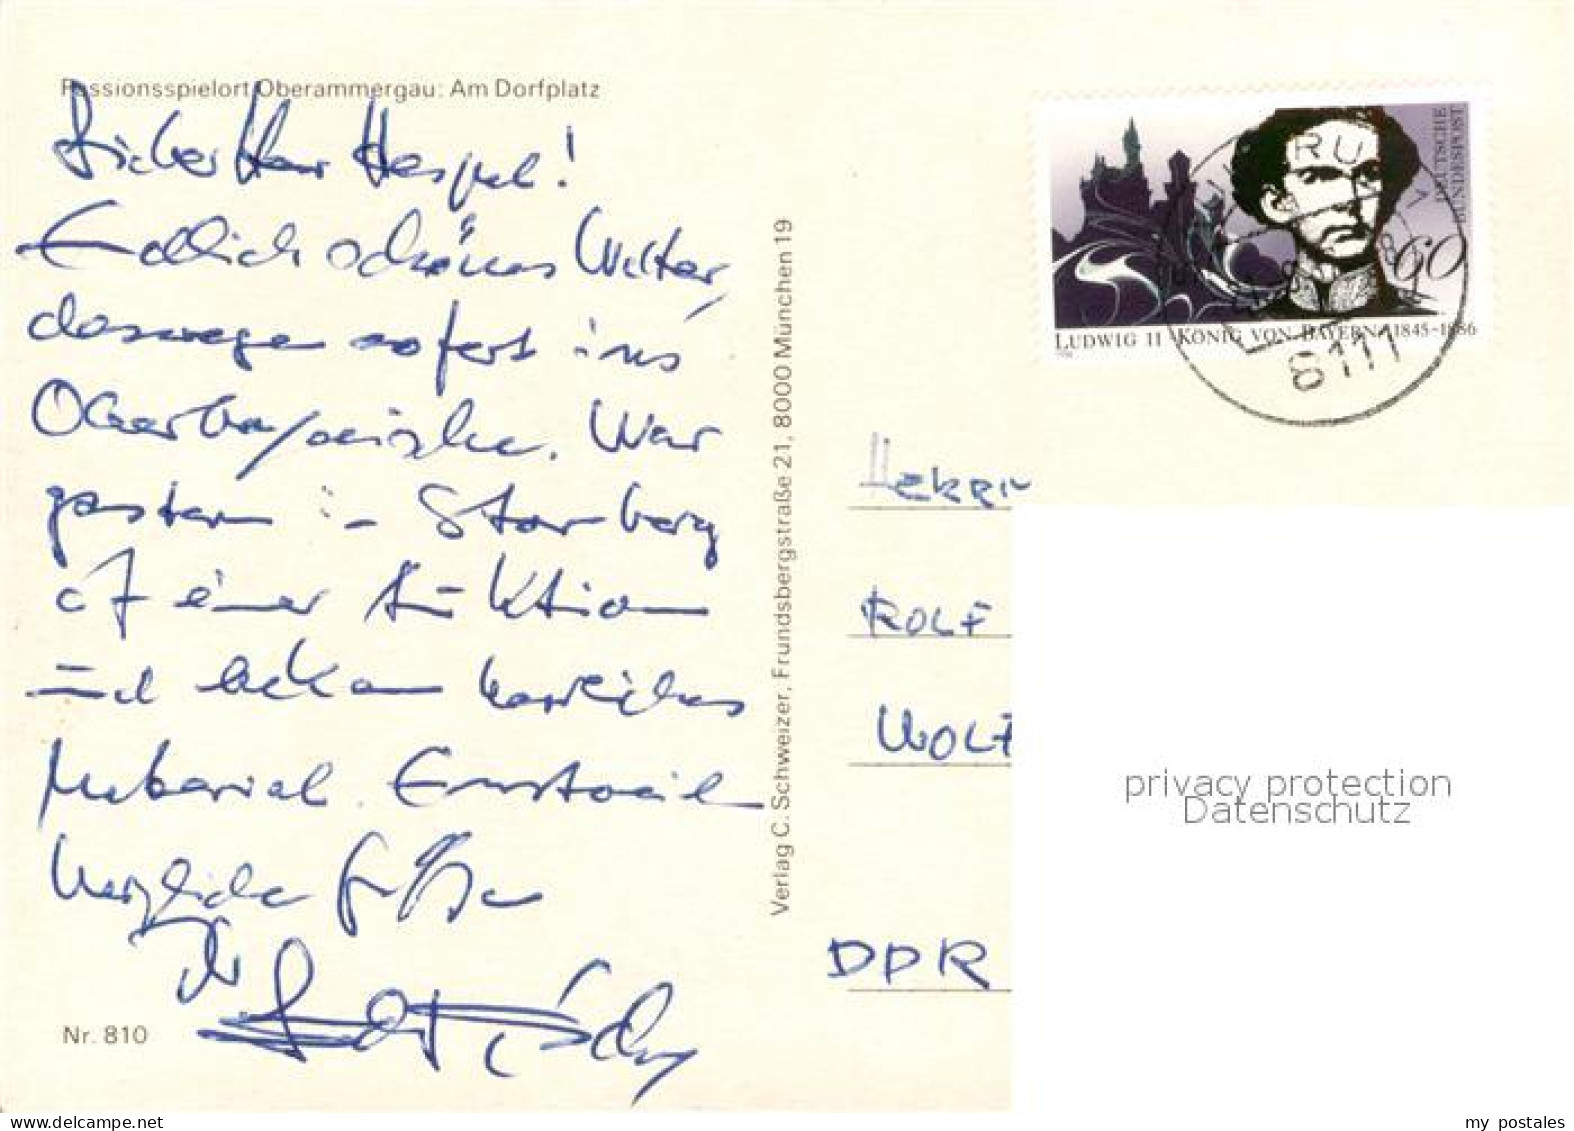 Passionsspielort Oberammergau: Am Dorfplatz
Lieber Herr Hespel!
Endlich schönes Wetter,
deswegen sofort ins
Oberbayerische. War
gestern in Starnberg
auf einer Auktion
und bekam herrliches
Material. Einstweilen
herzliche Grüße
Ihr
Nr. 810
Verlag C. Schweizer, Frundsbergstraße 21, 8000 München 19
DEUTSCHE
BUNDESPOST
60
LUDWIG II KÖNIG VON BAYERN 1845-1886
8111
HERRN
ROLF
WOLF
DDR
privacy protection
Datenschutz
hippostcard.com/listing
my postales